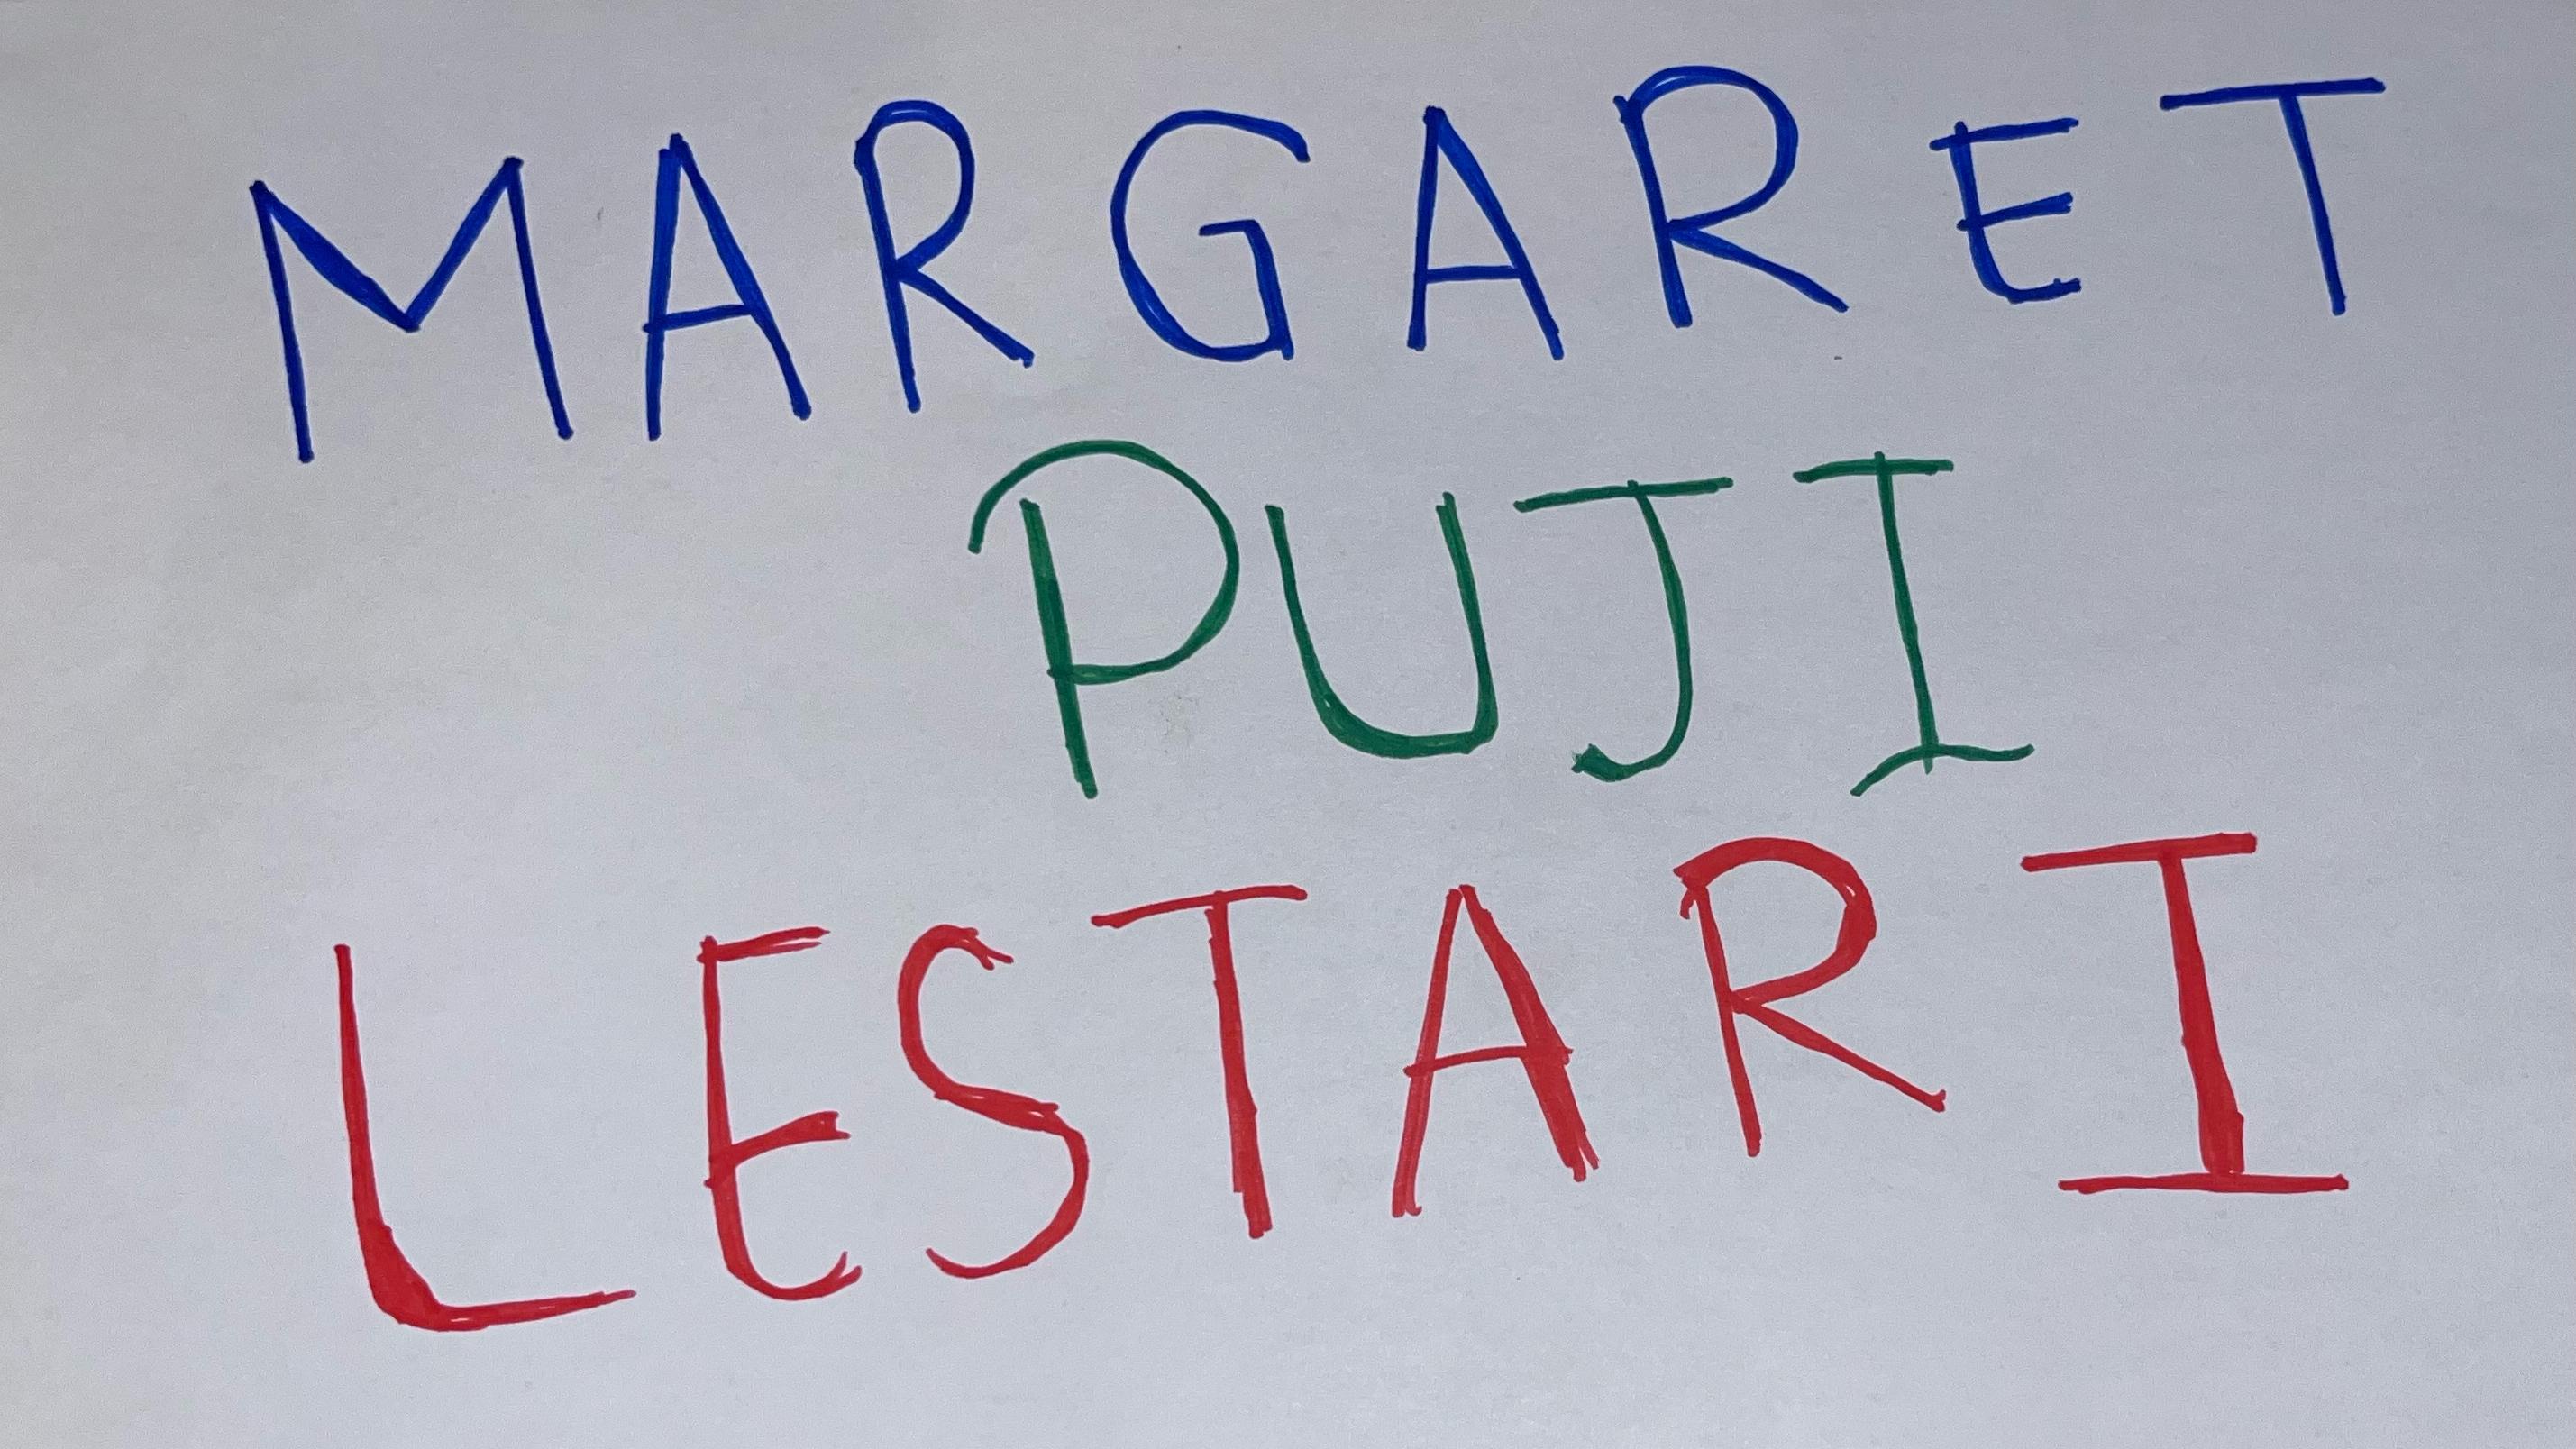 MARGARET
PUJI
LESTARI